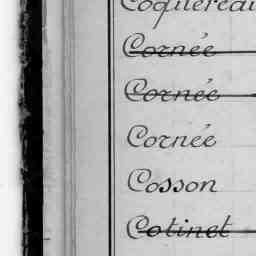 Cornée
Cornée
Cornée
Cosson
Cotinet